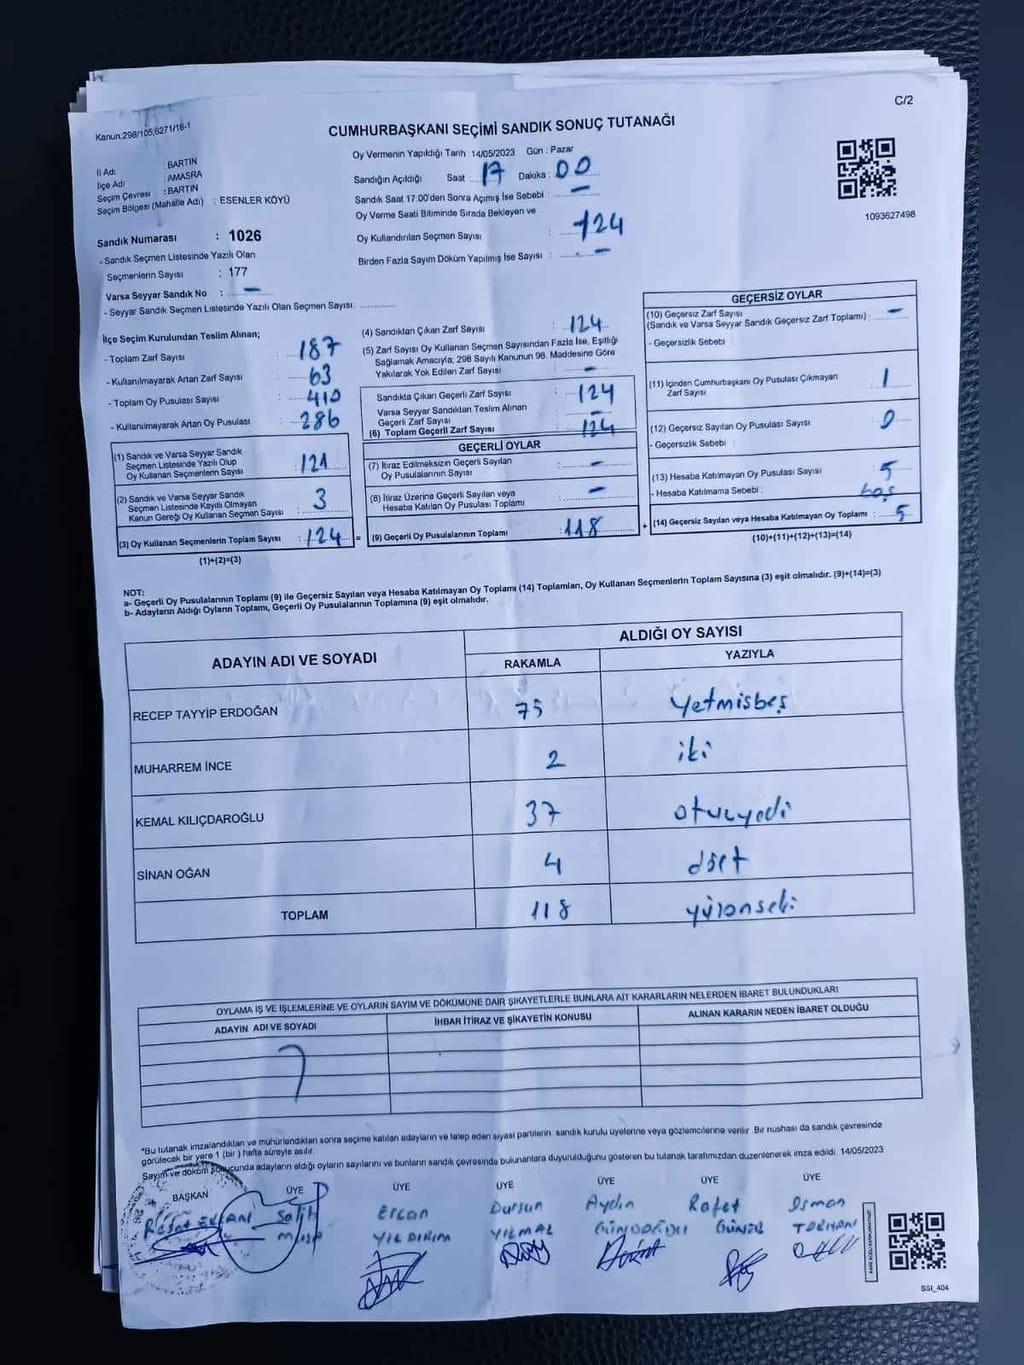 C/2
Kanun,298/105,6271/18-1
CUMHURBAŞKANI SEÇİMİ SANDIK SONUÇ TUTANAĞI
İl Adı : BARTIN
İlçe Adı : AMASRA
Seçim Çevresi : BARTIN
Seçim Bölgesi (Mahalle Adı) : ESENLER KÖYÜ
Sandık Numarası : 1026
- Sandık Seçmen Listesinde Yazılı Olan
Seçmenlerin Sayısı : 177
Varsa Seyyar Sandık No : –
- Seyyar Sandık Seçmen Listesinde Yazılı Olan Seçmen Sayısı:
Oy Vermenin Yapıldığı Tarih : 14/05/2023 Gün : Pazar
Sandığın Açıldığı Saat : 17 Dakika : 00
Sandık Saat 17:00'den Sonra Açımış İse Sebebi : –
Oy Verme Saati Bitiminde Sırada Bekleyen ve
Oy Kullandırılan Seçmen Sayısı : 124
Birden Fazla Sayım Döküm Yapılmış İse Sayısı : –
1093627498
İlçe Seçim Kurulundan Teslim Alınan;
- Toplam Zarf Sayısı : 187
- Kullanılmayarak Artan Zarf Sayısı : 63
- Toplam Oy Pusulası Sayısı : 410
- Kullanılmayarak Artan Oy Pusulası : 286
(1) Sandık ve Varsa Seyyar Sandık
Seçmen Listesinde Yazılı Olup
Oy Kullanan Seçmenlerin Sayısı : 121
(2) Sandık ve Varsa Seyyar Sandık
Seçmen Listesinde Kayıtlı Olmayan
Kanun Gereği Oy Kullanan Seçmen Sayısı : 3
(3) Oy Kullanan Seçmenlerin Toplam Sayısı : 124
(1)+(2)=(3)
(4) Sandıktan Çıkan Zarf Sayısı : 124
(5) Zarf Sayısı Oy Kullanan Seçmen Sayısından Fazla İse, Eşitliği
Sağlamak Amacıyla, 298 Sayılı Kanunun 98. Maddesine Göre
Yakılarak Yok Edilen Zarf Sayısı : –
Sandıkta Çıkan Geçerli Zarf Sayısı : 124
Varsa Seyyar Sandıktan Teslim Alınan
Geçerli Zarf Sayısı : –
(6) Toplam Geçerli Zarf Sayısı : 124
GEÇERLİ OYLAR
(7) İtiraz Edilmeksizin Geçerli Sayılan
Oy Pusulalarının Sayısı : –
(8) İtiraz Üzerine Geçerli Sayılan veya
Hesaba Katılan Oy Pusulası Toplamı : –
= (9) Geçerli Oy Pusulalarının Toplamı : 118
GEÇERSİZ OYLAR
(10) Geçersiz Zarf Sayısı
(Sandık ve Varsa Seyyar Sandık Geçersiz Zarf Toplamı) : –
- Geçersizlik Sebebi :
(11) İçinden Cumhurbaşkanı Oy Pusulası Çıkmayan
Zarf Sayısı : 1
(12) Geçersiz Sayılan Oy Pusulası Sayısı : 0
- Geçersizlik Sebebi :
(13) Hesaba Katılmayan Oy Pusulası Sayısı : 5
- Hesaba Katılmama Sebebi : boş
+ (14) Geçersiz Sayılan veya Hesaba Katılmayan Oy Toplamı : 5
(10)+(11)+(12)+(13)=(14)
NOT:
a- Geçerli Oy Pusulalarının Toplamı (9) ile Geçersiz Sayılan veya Hesaba Katılmayan Oy Toplamı (14) Toplamları, Oy Kullanan Seçmenlerin Toplam Sayısına (3) eşit olmalıdır. (9)+(14)=(3)
b- Adayların Aldığı Oyların Toplamı, Geçerli Oy Pusulalarının Toplamına (9) eşit olmalıdır.
ADAYIN ADI VE SOYADI
ALDIĞI OY SAYISI
RAKAMLA YAZIYLA
RECEP TAYYİP ERDOĞAN 75 yetmisbeş
MUHARREM İNCE 2 iki
KEMAL KILIÇDAROĞLU 37 otuzyedi
SİNAN OĞAN 4 dört
TOPLAM 118 yüzonseki
OYLAMA İŞ VE İŞLEMLERİNE VE OYLARIN SAYIM VE DÖKÜMÜNE DAİR ŞİKAYETLERLE BUNLARA AİT KARARLARIN NELERDEN İBARET BULUNDUKLARI
ADAYIN ADI VE SOYADI İHBAR İTİRAZ VE ŞİKAYETİN KONUSU ALINAN KARARIN NEDEN İBARET OLDUĞU
"Bu tutanak imzalandıktan ve mühürlendikten sonra seçime katılan adayların ve talep eden siyasi partilerin sandık kurulu üyelerine veya gözlemcilerine verilir. Bir nushası da sandık çevresinde
görülecek bir yere 1 (bir) hafta süreyle asılır.
Sayım ve döküm sonucunda adayların aldığı oyların sayılarını ve bunların sandık çevresinde bulunanlara duyurulduğunu gösteren bu tutanak tarafımızdan düzenlenerek imza edildi. 14/05/2023
BAŞKAN ÜYE ÜYE ÜYE ÜYE ÜYE ÜYE
Salih Ercan Dursun Aydın Rafet Osman
YILDIRIM YILMAZ GÜNDOĞDU GÜNER
SSI_404